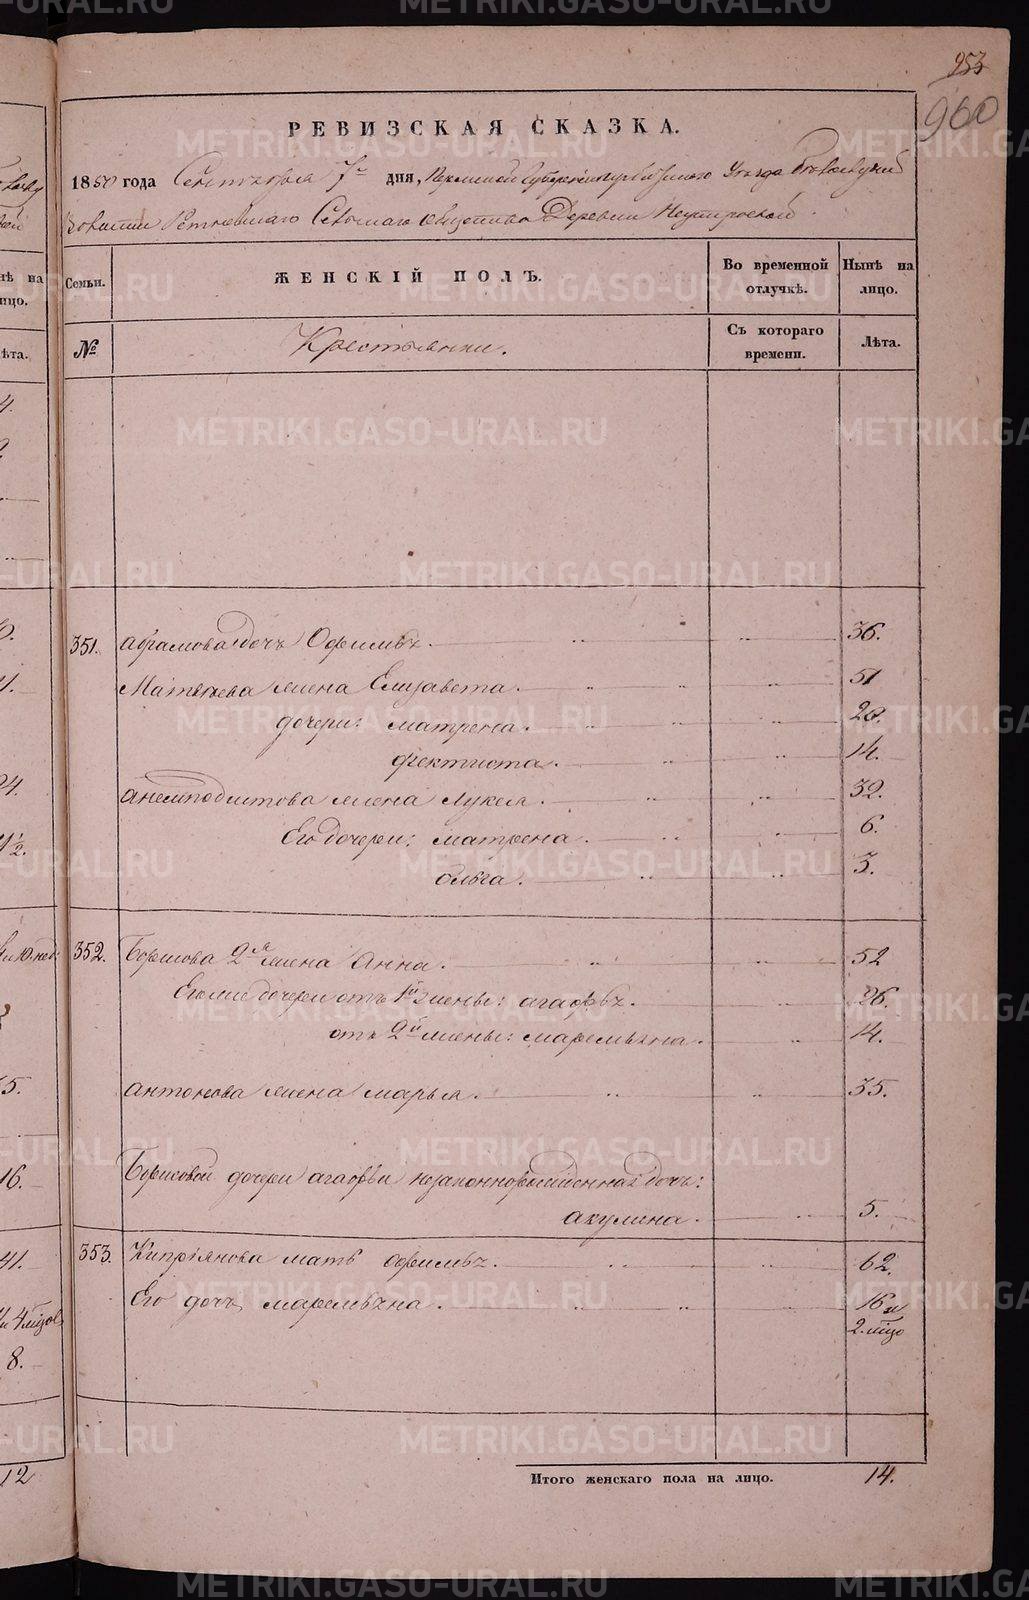 953
960
РЕВИЗСКАЯ СКАЗКА.
1850 года Сентября 7го дня, Пермской Губернии Ирбитскаго Уезда
Волости Ретневскаго Сельскаго общества Деревни Неустроевой
Семьи. ЖЕНСКІЙ ПОЛЪ. Во временной отлучкѣ. Нынѣ на лицо.
№ Крестьянки. Съ котораго времени. Лѣта.
351. Абрамова дочь Офимья. 36.
Матвѣева жена Елизавета. 51
дочери: Матрена. 20.
Фектиста. 14.
Анемподистова жена Лукея. 32.
Его дочери: Матрена. 6.
Ольга. 3.
352. Борисова 2я жена Анна. 52
Его же дочери отъ 1й жены: Агафья. 26.
отъ 2й жены: Маремьяна. 14.
Антонова жена Марья. 35.
Борисовой дочери Агафьи незаконнорожденная дочь:
Акулина. 5.
353. Кипріянова мать Офимья. 62.
Его дочь Маремьяна. 16 и
2. мѣсо
Итого женскаго пола на лицо. 14.
METRIKI.GASO-URAL.RU